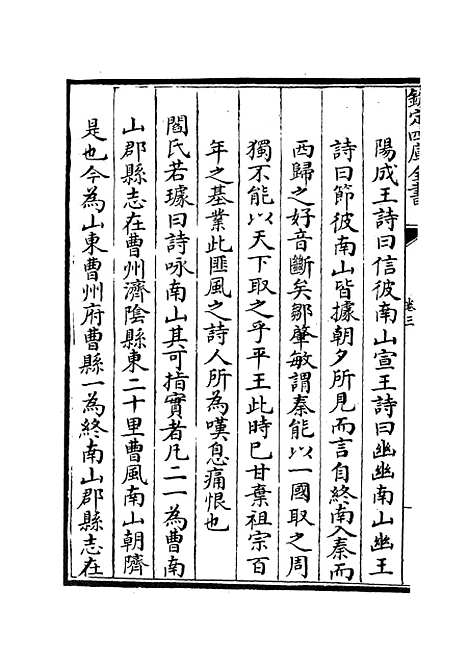 欽定四庫全書
卷三
陽成王詩曰信彼南山宣王詩曰幽幽南山幽王
詩曰節彼南山皆據朝夕所見而言自終南入秦而
西歸之好音斷矣鄒肇敏謂秦能以一國取之周
獨不能以天下取之乎平王此時已甘棄祖宗百
年之基業此匪風之詩人所為嘆息痛恨也
閻氏若璩曰詩咏南山其可指實者凡二一為曹南
山郡縣志在曹州濟陰縣東二十里曹風南山朝隮
是也今為山東曹州府曹縣一為終南山郡縣志在